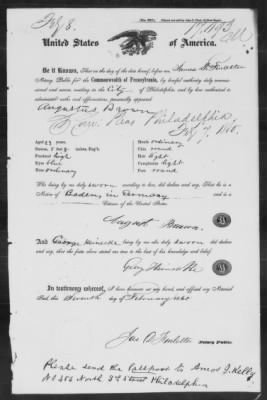 Feby 8.
United States of America.
Be it Known, That on the day of the date hereof, before me,
Notary Public for the Commonwealth of Pennsylvania, by lawful authority duly commissioned
and sworn, residing in the City of Philadelphia, and by law authorized to
administer oaths and affirmations, personally appeared
Augustus Brown
Philadelphia
Feby 7, 1860.
Aged 23 years
Stature 5 feet 8 inches, Eng'h
Forehead high
Eyes blue
Nose ordinary
Mouth ordinary
Chin round
Hair light
Complexion light
Face round
Who being by me duly sworn according to law, did declare and say, That he is a
Native of Baden in Germany and is a
Citizen of the United States.
August Braun.
And George being by me duly sworn did declare
and say, that the facts above stated are true to the best of his knowledge and belief.
In testimony whereof, I have hereunto set my hand, and affixed my Notarial
Seal, the Seventh day of February 1860
Notary Public
Please send the Passport to Amos J. Kelly
No 456 North 3d Street Philadelphia